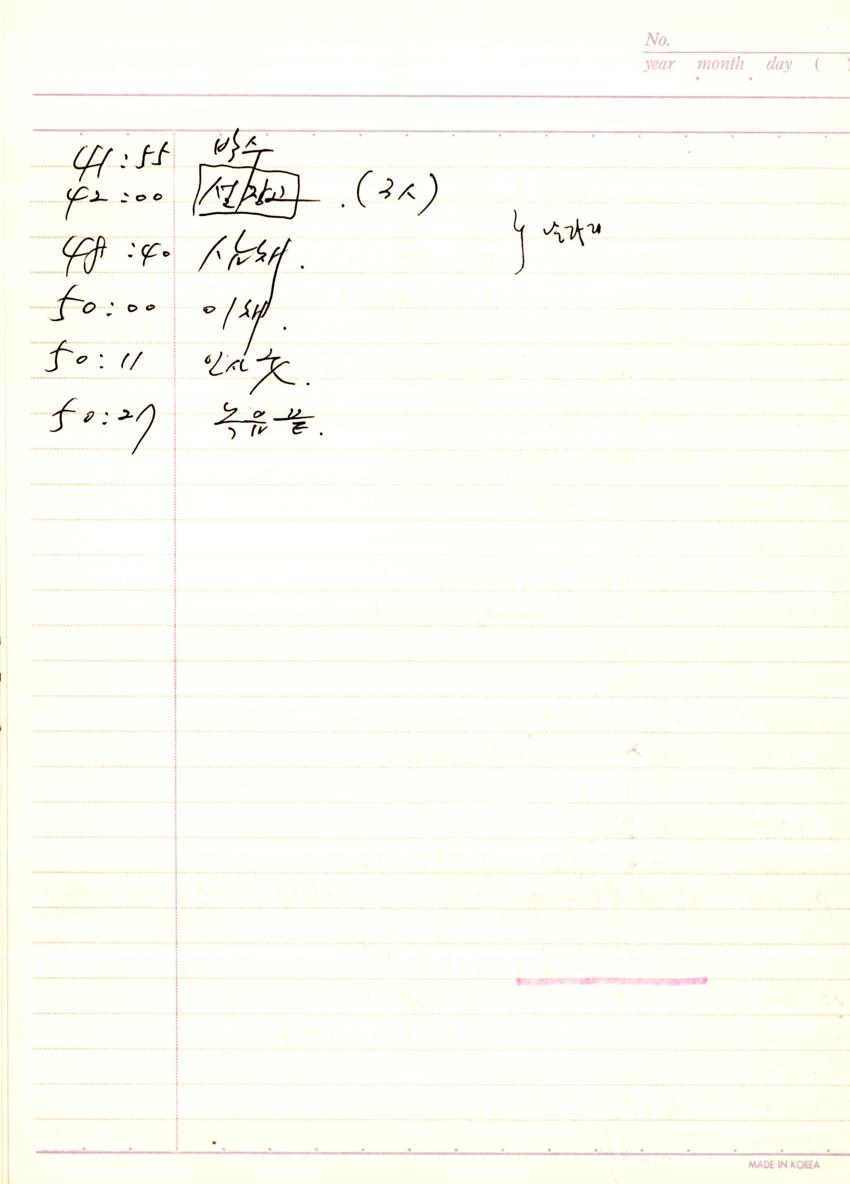 No.
year month day ( )
41:55 박수
42:00 설장고 . (구시)
48:40 삼채.
50:00 이채.
50:11 인사굿.
50:27 녹음끝.
MADE IN KOREA